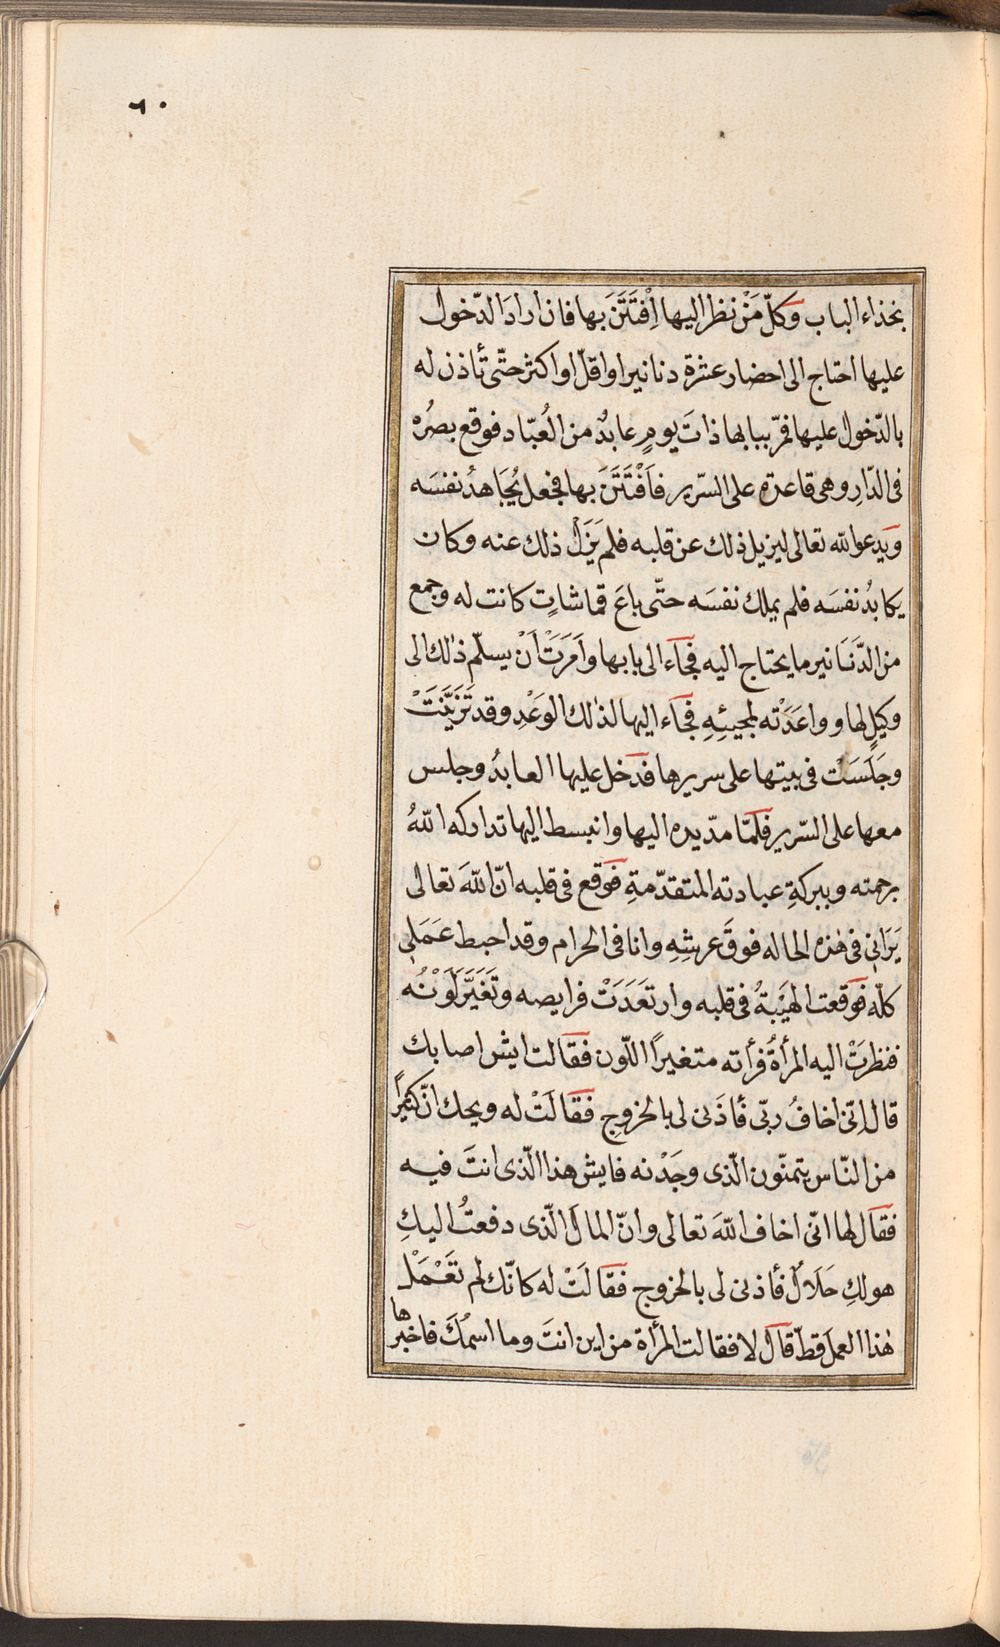 ٦٠
بحذاء الباب وكلّ مَنْ نظر اليها اِفْتَتَنَ بها فان ارادَ الدّخول
عليها احتاج الى احضار عشرة دنانير او اقلّ او اكثر حتّى تأذن له
بالدّخول عليها فمرّ ببابها ذاتَ يومٍ عابدٌ من العُبّاد فوقع بصُره
فى الدّارِ وهى قاعدة على السّرير فاَفْتَتَنَ بها فجعل يُجَاهدُ نفسَه
ويَدعو الله تعالى ليزيل ذلك عن قلبه فلم يَزَلْ ذلك عنه وكان
يكابدُ نفسَه فلم يملك نفسَه حتّى باعَ قماشاتٍ كانت له وجمع
من الدّنَنانير ما يحتاج اليه فجَاء الى بابها واَمَرَتْ اَنْ يسلّم ذٰلك الى
وكيلٍ لها وواعَدَتْه لمجيئِهِ فجَاء اليها لذٰلك الوَعْدِ وقد تَزَيَّنَتْ
وجَلَسَتْ فى بيتها على سريرها فدَخل عليها العابدُ وجلس
معها على السّرير فلَمّا مدّ يده اليها وانبسط اليها تداركه اللّٰهُ
برحمته وببركةِ عبادته المتقدّمةِ فوَقع فى قلبه انّ اللّٰهَ تعالى
يَرَانِى فى هٰذه الحاله فوقَ عرشِهِ وانا فى الحرام وقد احبط عَمَلى
كلّه فوَقعت الهيَبةُ فى قلبه وارتعَدَتْ فرايصه وتَغَيَّرَ لَوْنُه
فنظرَتْ اليه المرأةُ فرأته متغيراً اللّون فقَالت ايش اصابك
قال اِنّى اخافُ ربّى فأذَنى لى بالخروجِ فقَالَتْ له ويحك انّ كثيرًا
من النّاس يتمنّون الّذى وجَدْته فايش هذا الّذى انتَ فيه
فقَال لها انّى اخاف اللّٰهَ تعالى وانّ المالَ الّذى دفعتُ اليكِ
هو لكِ حَلَالٌ فأذنى لى بالخروج فقَالَتْ له كانّك لم تَعْمَلْ
هٰذا العملَ قطّ قَال لا فقالت المرأة من اين انتَ وما اسمُكَ فاخبرها